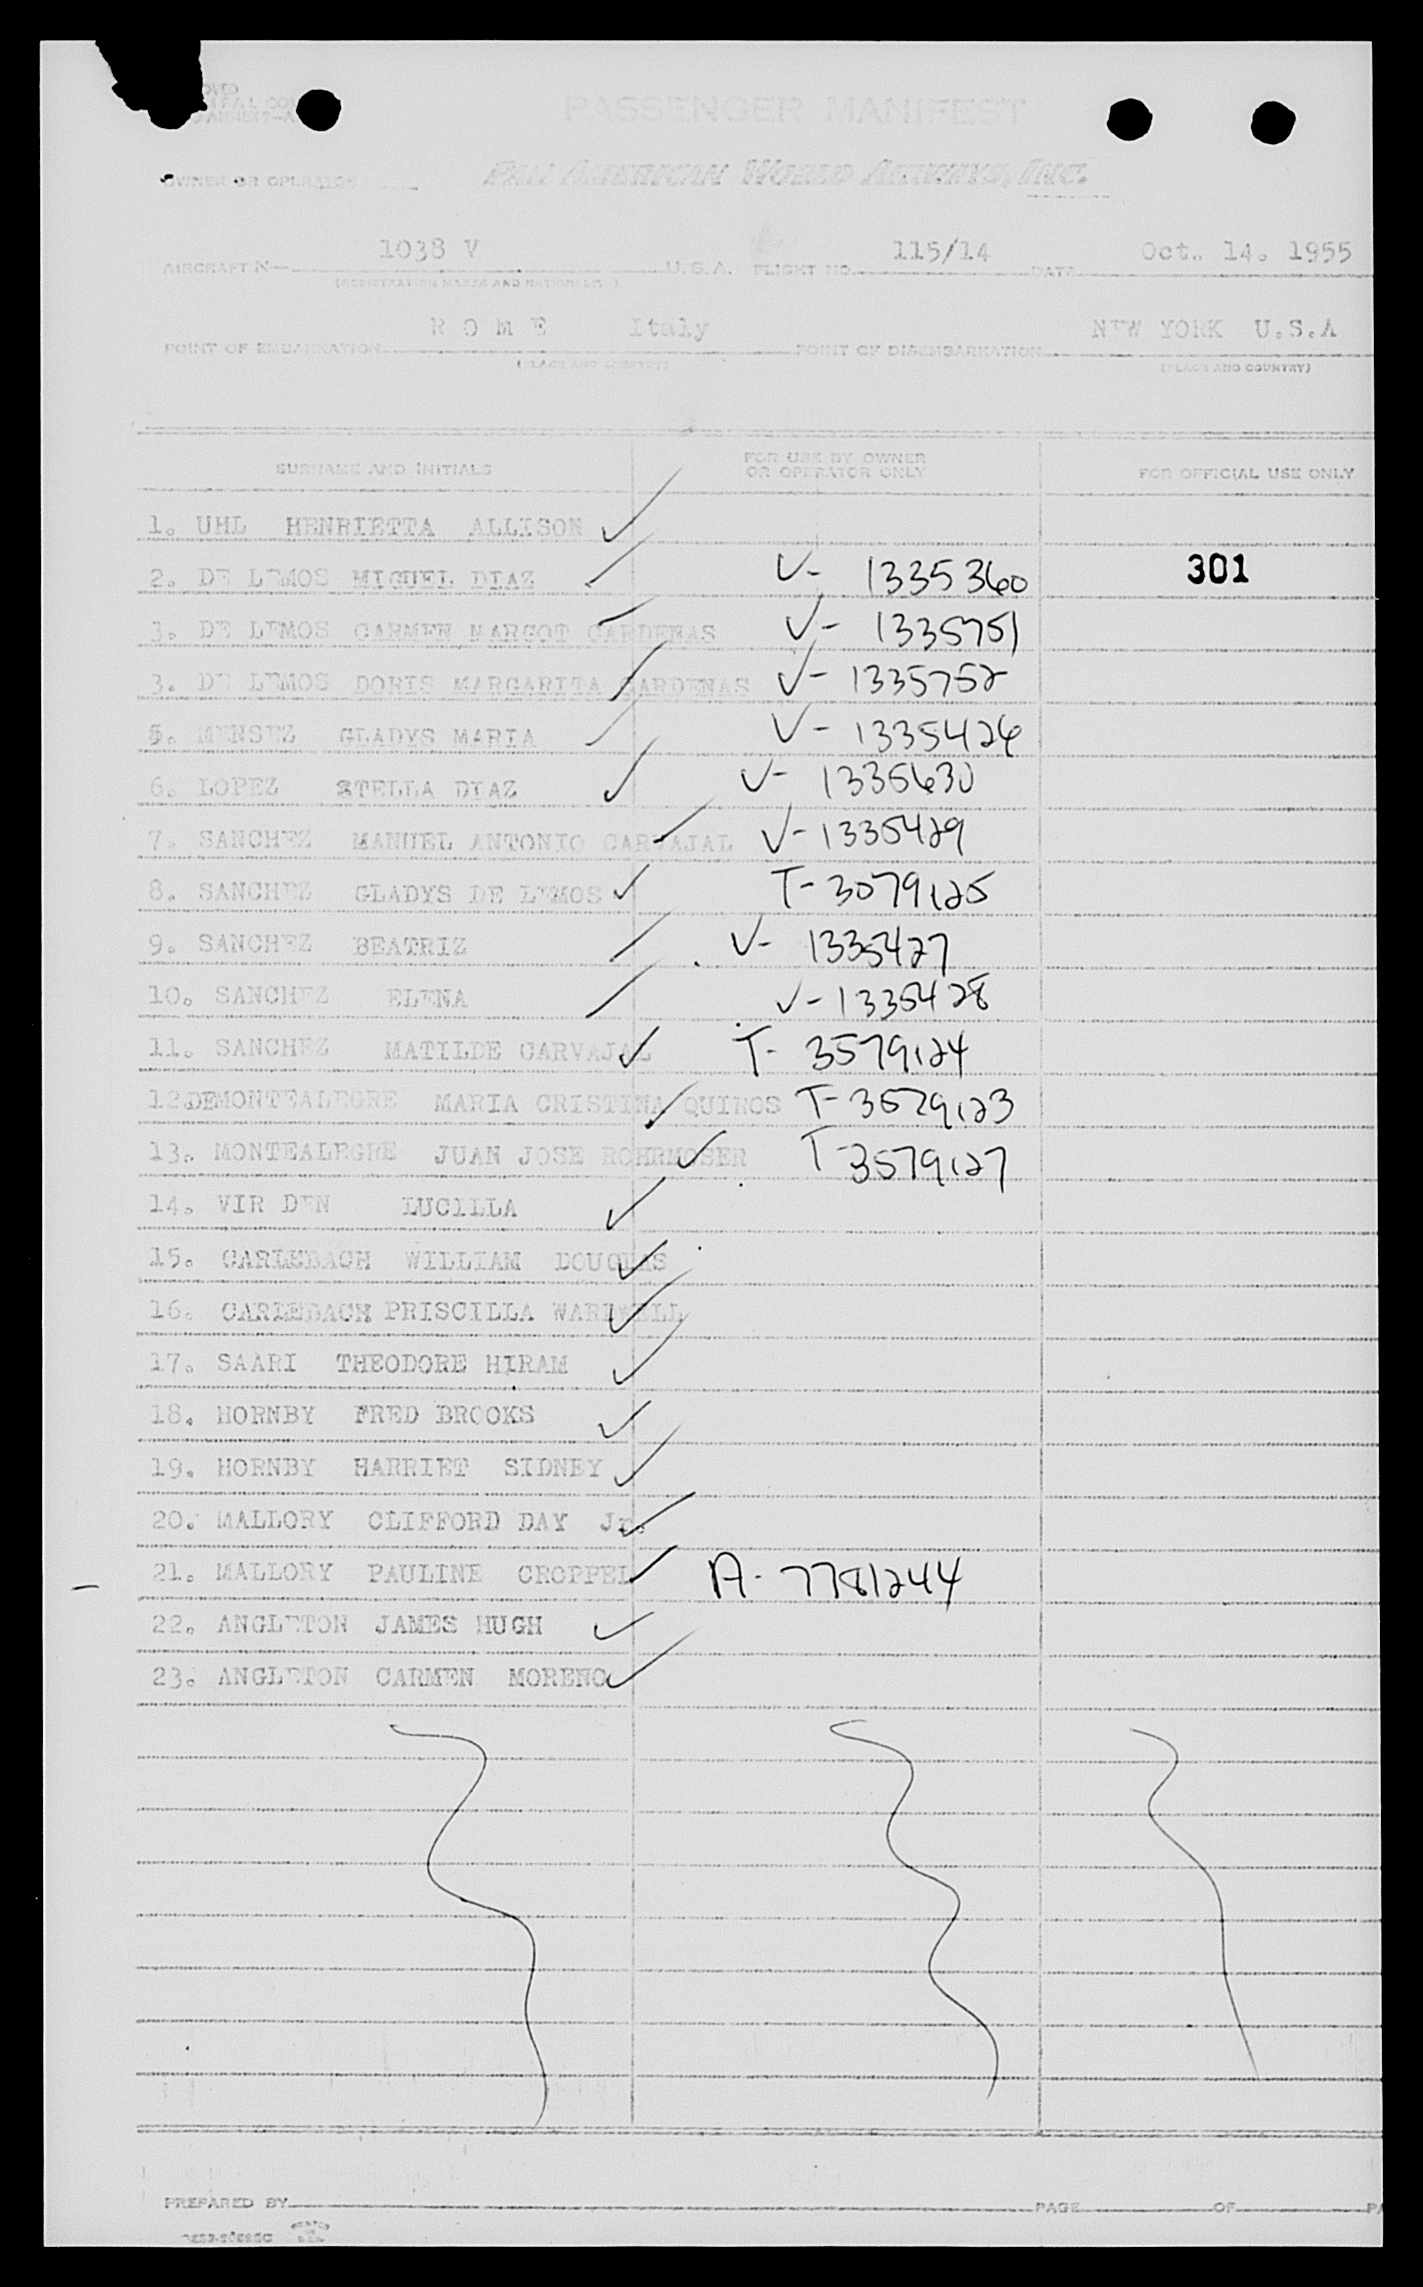 PASSENGER MANIFEST
OWNER OR OPERATOR PAN AMERICAN WORLD AIRWAYS, INC.
AIRCRAFT N 1038 V U.S.A. FLIGHT NO. 115/14 DATE Oct. 14. 1955
(REGISTRATION MARKS AND NATIONALITY)
POINT OF EMBARKATION R O M E Italy POINT OF DISEMBARKATION NEW YORK U.S.A
(PLACE AND COUNTRY) (PLACE AND COUNTRY)
SURNAME AND INITIALS FOR USE BY OWNER OR OPERATOR ONLY FOR OFFICIAL USE ONLY
1. UHL HENRIETTA ALLISON ✓
2. DE LEMOS MIGUEL DIAZ ✓ V- 1335360 301
3. DE LEMOS CARMEN MARGOT CARDENAS ✓ V- 1335751
3. DE LEMOS DORIS MARGARITA CARDENAS ✓ V- 1335752
5. GLADYS MARIA ✓ V- 1335426
6. LOPEZ STELLA DIAZ ✓ V- 1335630
7. SANCHEZ MANUEL ANTONIO CARVAJAL ✓ V- 1335429
8. SANCHEZ GLADYS DE LEMOS ✓ T- 3079125
9. SANCHEZ BEATRIZ ✓ V- 1335427
10. SANCHEZ ELENA ✓ V- 1335428
11. SANCHEZ MATILDE CARVAJAL ✓ T- 3579124
12. DEMONTEALEGRE MARIA CRISTINA QUIROS ✓ T- 3579123
13. MONTEALEGRE JUAN JOSE ROHRMOSER ✓ T- 3579127
14. VIR DEN LUCILLA ✓
15. CARLEBACH WILLIAM DOUGLAS ✓
16. CARLEBACH PRISCILLA WARDWELL ✓
17. SAARI THEODORE HIRAM ✓
18. HORNBY FRED BROOKS ✓
19. HORNBY HARRIET SIDNEY ✓
20. MALLORY CLIFFORD DAY Jr. ✓
21. MALLORY PAULINE CROPPEL ✓ A- 7781244
22. ANGLETON JAMES HUGH ✓
23. ANGLETON CARMEN MORENO ✓
PREPARED BY PAGE OF